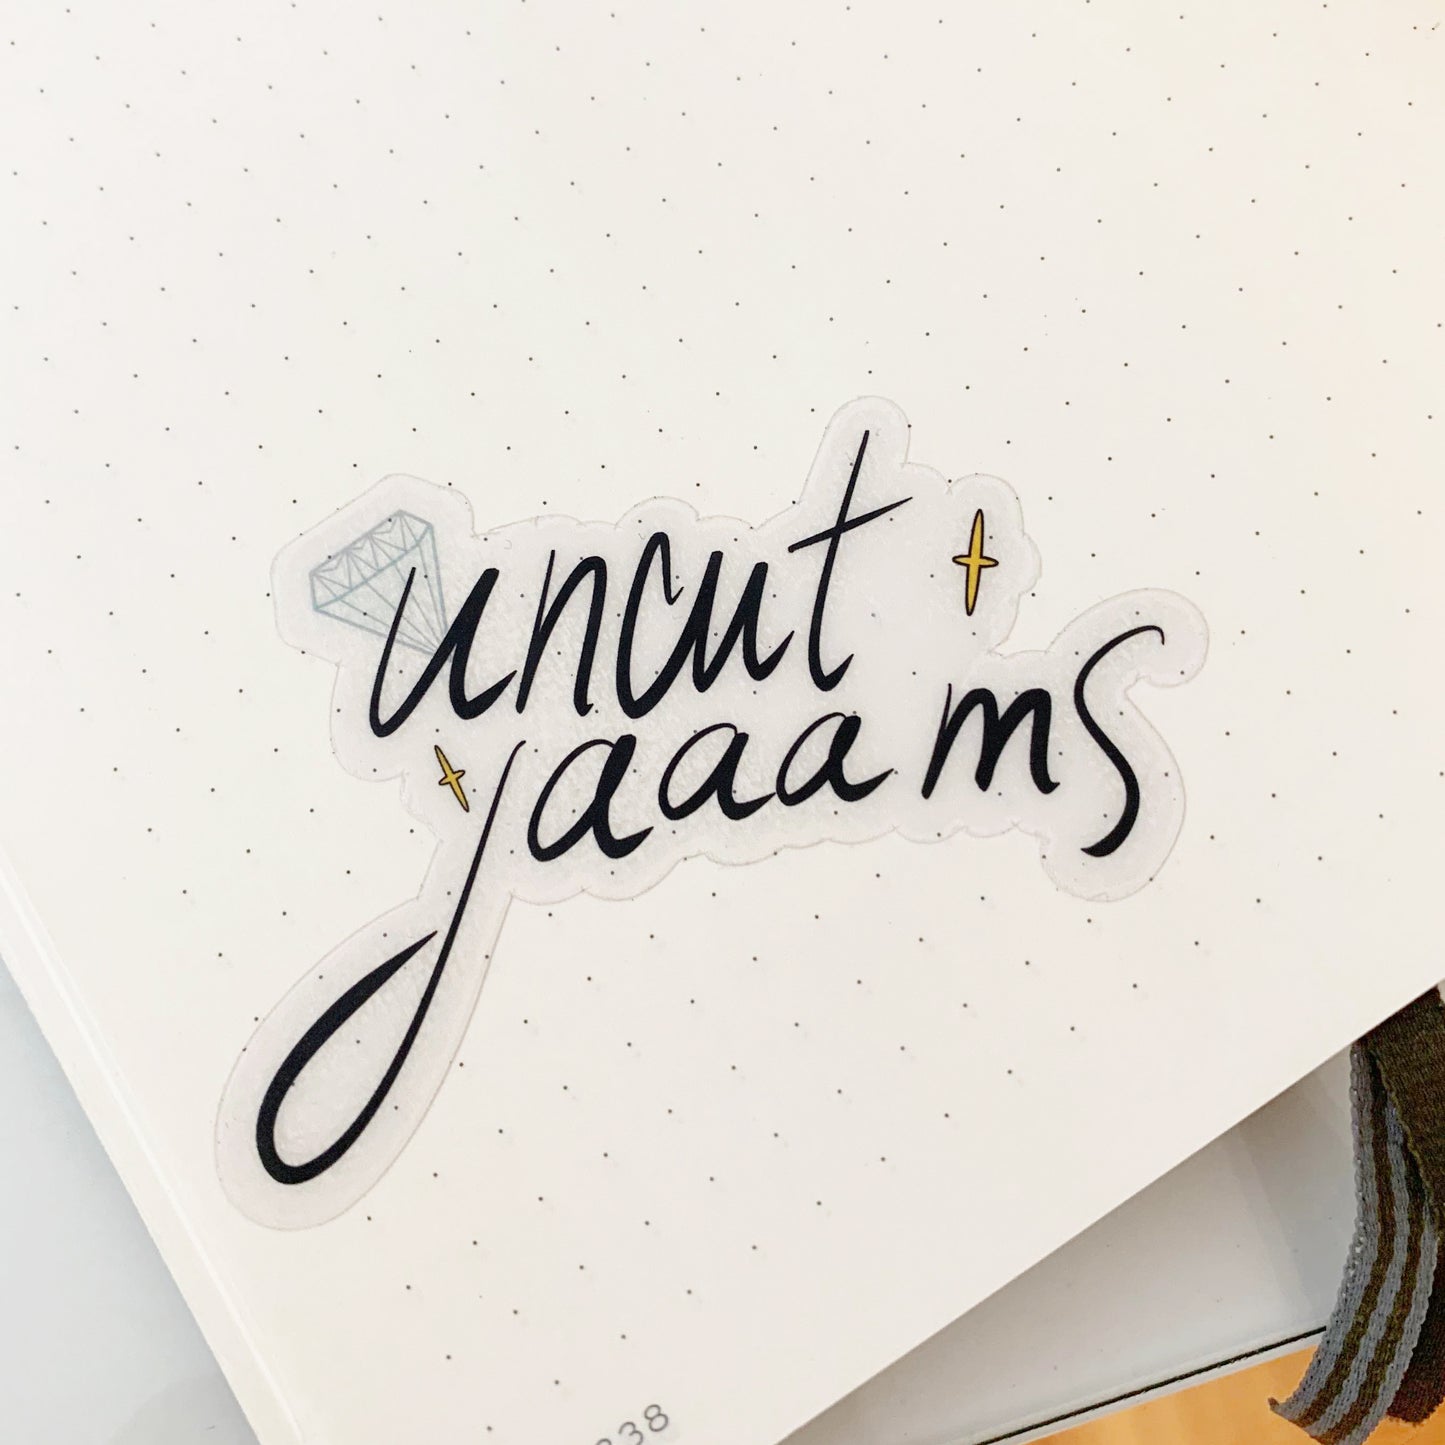 uncut
jaaams
38